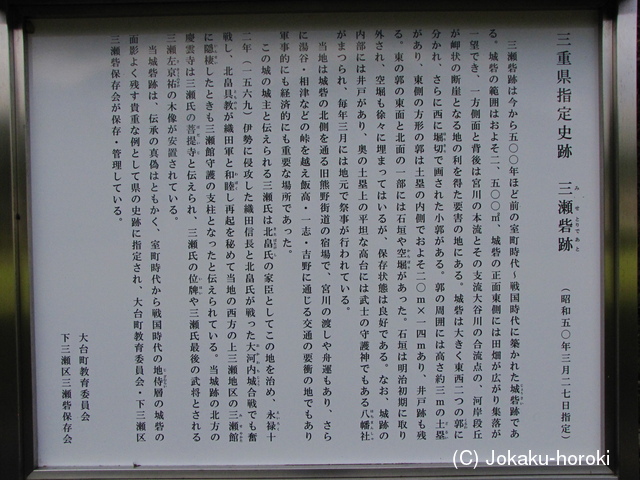 三重県指定史跡　三瀬砦跡　（昭和五〇年三月二七日指定）
み　せ　とりで　あと
三瀬砦跡は今から五〇〇年ほど前の室町時代～戦国時代に築かれた城砦跡であ
る。城砦の範囲はおよそ二、五〇〇㎡、城砦の正面東側には田畑が広がり集落が
一望でき、一方側面と背後は宮川の本流とその支流大谷川の合流点の、河岸段丘
が岬状の断崖となる地の利を得た要害の地にある。城砦は大きく東西二つの郭に
分かれ、さらに西に堀切で画された小郭がある。郭の周囲には高さ約三ｍの土塁
があり、東側の方形の郭は土塁の内側でおよそ二〇ｍ×一四ｍあり、井戸跡も残
る。東の郭の東面と北面の一部には石垣や空堀があった。石垣は明治初期に取り
外され、空堀も徐々に埋まってはいるが、保存状態は良好である。なお、城跡の
内部には井戸があり、奥の土塁上の平坦な高台には武士の守護神でもある八幡社
がまつられ、毎年三月には地元で祭事が行われている。
当地は城砦の北側を通る旧熊野街道の宿場で、宮川の渡しや舟運もあり、さら
に湯谷・相津などの峠を越え飯高・一志・吉野に通じる交通の要衝の地でもあり
軍事的にも経済的にも重要な場所であった。
この城の城主と伝えられる三瀬氏は北畠氏の家臣としてこの地を治め、永禄十
二年（一五六九）伊勢に侵攻した織田信長と北畠氏が戦った大河内城合戦でも奮
戦し、北畠具教が織田軍と和睦し再起を秘めて当地の西方の上三瀬地区の三瀬館
に隠棲したときも三瀬館守護の支柱となったと伝えられている。当城跡の北方の
慶雲寺は三瀬氏の菩提寺と伝えられ、三瀬氏の位牌や三瀬氏最後の武将とされる
三瀬左京祐の木像が安置されている。
当城砦跡は、伝承の真偽はともかく、室町時代から戦国時代の地侍層の城砦の
面影よく残す貴重な例として県の史跡に指定され、大台町教育委員会・下三瀬区
三瀬砦保存会が保存・管理している。
大台町教育委員会
下三瀬区三瀬砦保存会
(C) Jokaku-horoki